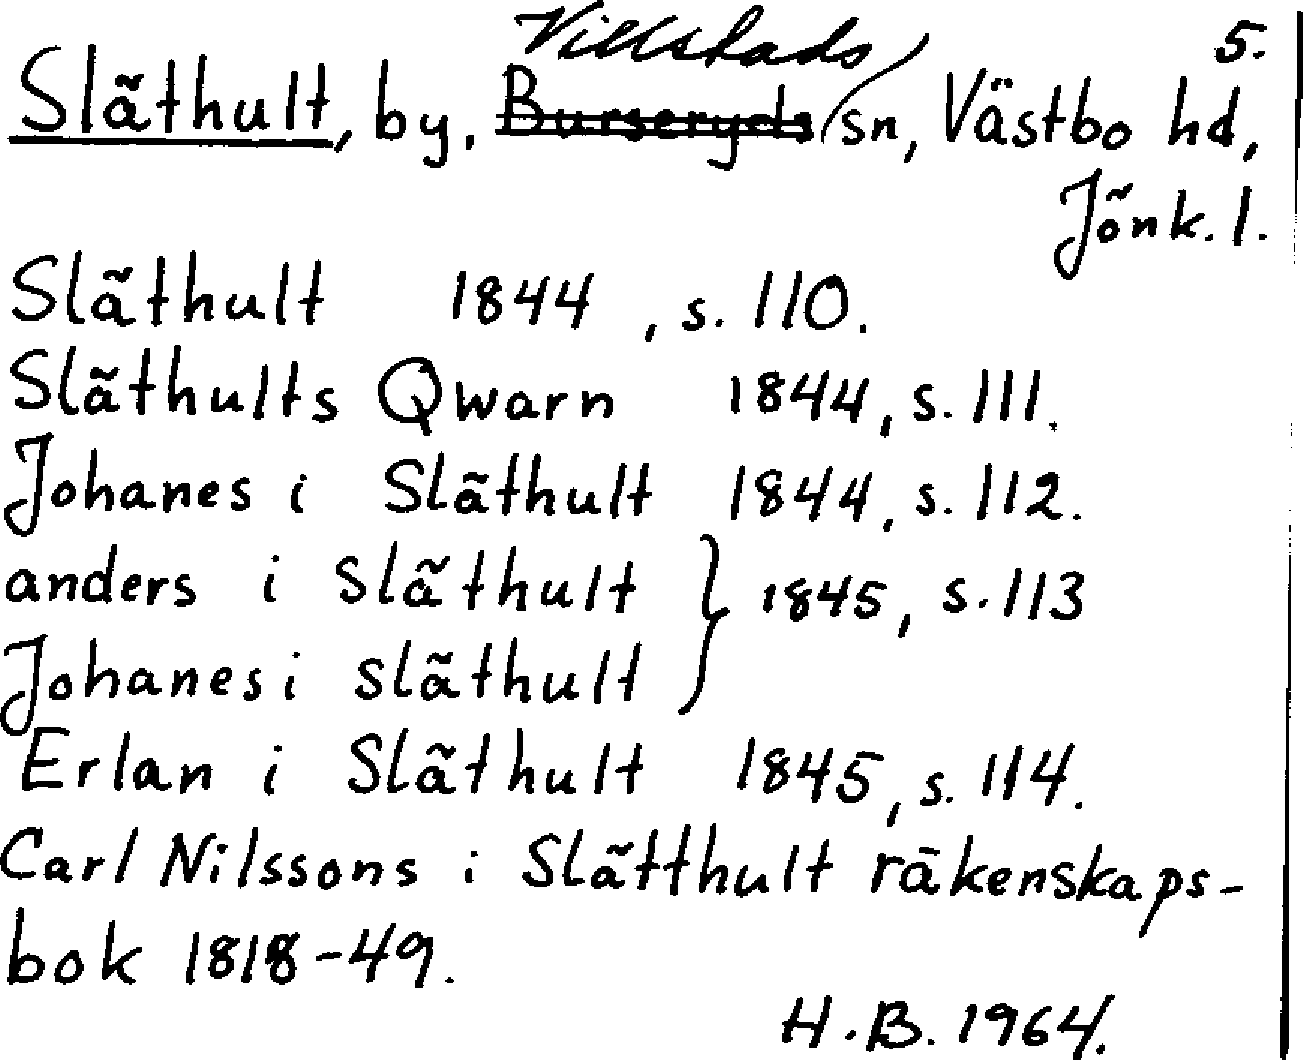 Villstads 5.
Slãthult, by, Burseryds sn, Västbo hd,
Jõnk. l.
Slãthult 1844, s. 110.
Slãthults Qwarn 1844, s. 111.
Johanes i Slãthult 1844, s. 112.
anders i Slãthult } 1845, s. 113
Johanes i slãthult
Erlan i Slãthult 1845, s. 114.
Carl Nilssons i Slãtthult rãkenskaps-
bok 1818-49.
H.B. 1964.